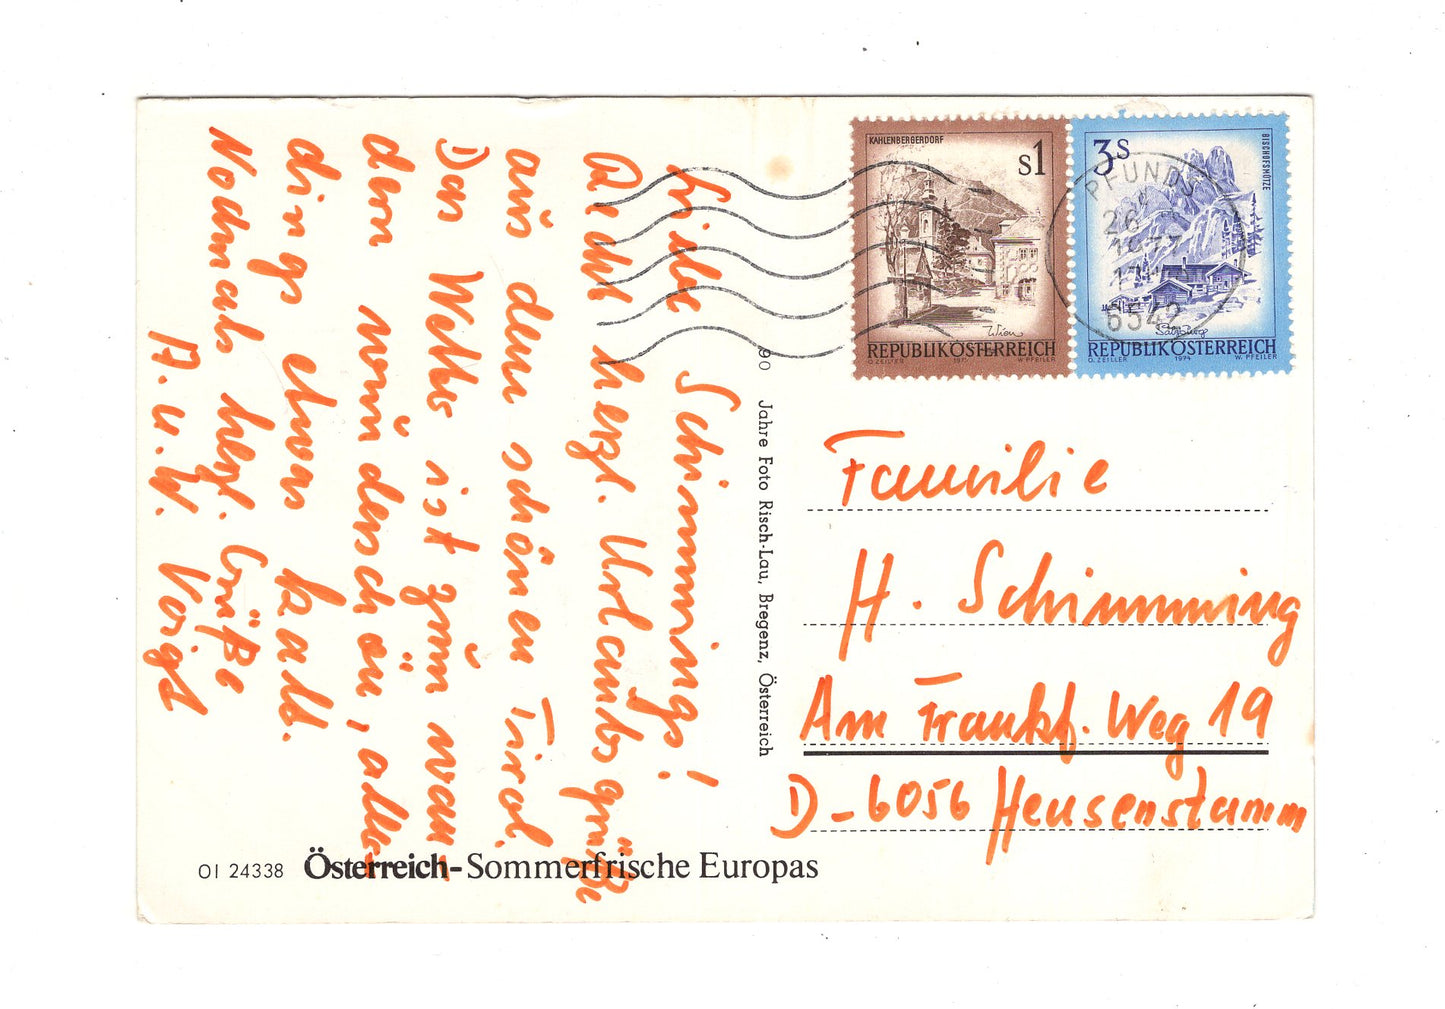 Liebe Schimmings!
Recht herzl. Urlaubsgrüße
aus dem schönen Tirol.
Das Wetter ist zum wan-
dern wunderschön, aller-
dings etwas kalt.
Nochmals herzl. Grüße
A. u. W. Voigt
KAHLENBERGERDORF
s1
Wien
REPUBLIK ÖSTERREICH
O. ZEILLER 1975 W. PFEILER
3s
BISCHOFSMÜTZE
Salzburg
REPUBLIK ÖSTERREICH
O. ZEILLER 1974 W. PFEILER
PFUNDS
26
1977
17
6542
90 Jahre Foto Risch-Lau, Bregenz, Österreich
Familie
H. Schimming
Am Frankf. Weg 19
D-6056 Heusenstamm
OI 24338 Österreich-Sommerfrische Europas